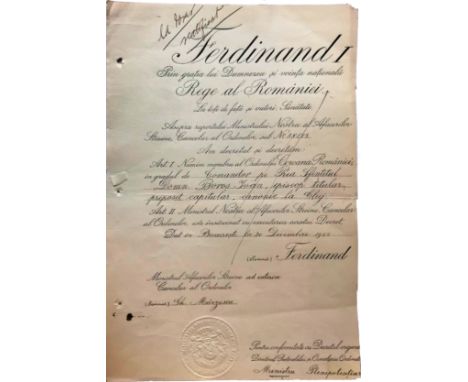 Ferdinand I
Prin grația lui Dumnezeu și voința națională
Rege al României
La toți de față și viitori, Sănătate
Asupra raportului Ministrului Nostru al Afacerilor
Străine, Cancelar al Ordinelor, sub No
Am decretat și decretăm:
Art. I Numim membru al Ordinului „Coroana României”,
în gradul de Comandor pe Prea Sfințitul
Domn Boros episcop titular,
prepozit capitular, canonic la Cluj
Art. II Ministrul Nostru al Afacerilor Străine, Cancelar
al Ordinelor, este însărcinat cu executarea acestui Decret.
Dat în București la 30 Decembrie
(semnat) Ferdinand
Ministrul Afacerilor Străine ad interim
Cancelar al Ordinelor
(semnat) Gh. Mârzescu
Pentru conformitate cu Decretul original
Directorul Protocolului și Cancelariei Ordinelor
Ministru Plenipotențiar